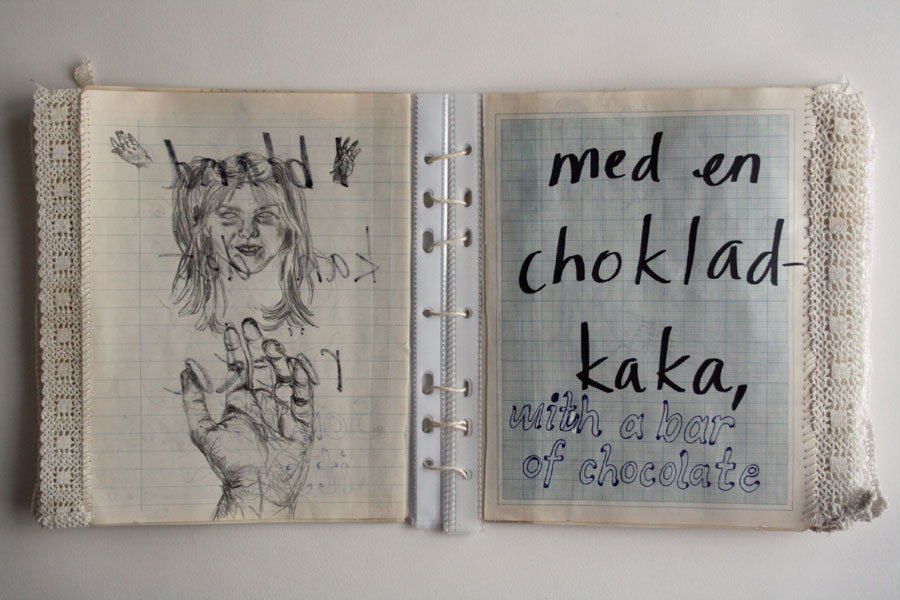 med en
choklad-
kaka,
with a bar
of chocolate